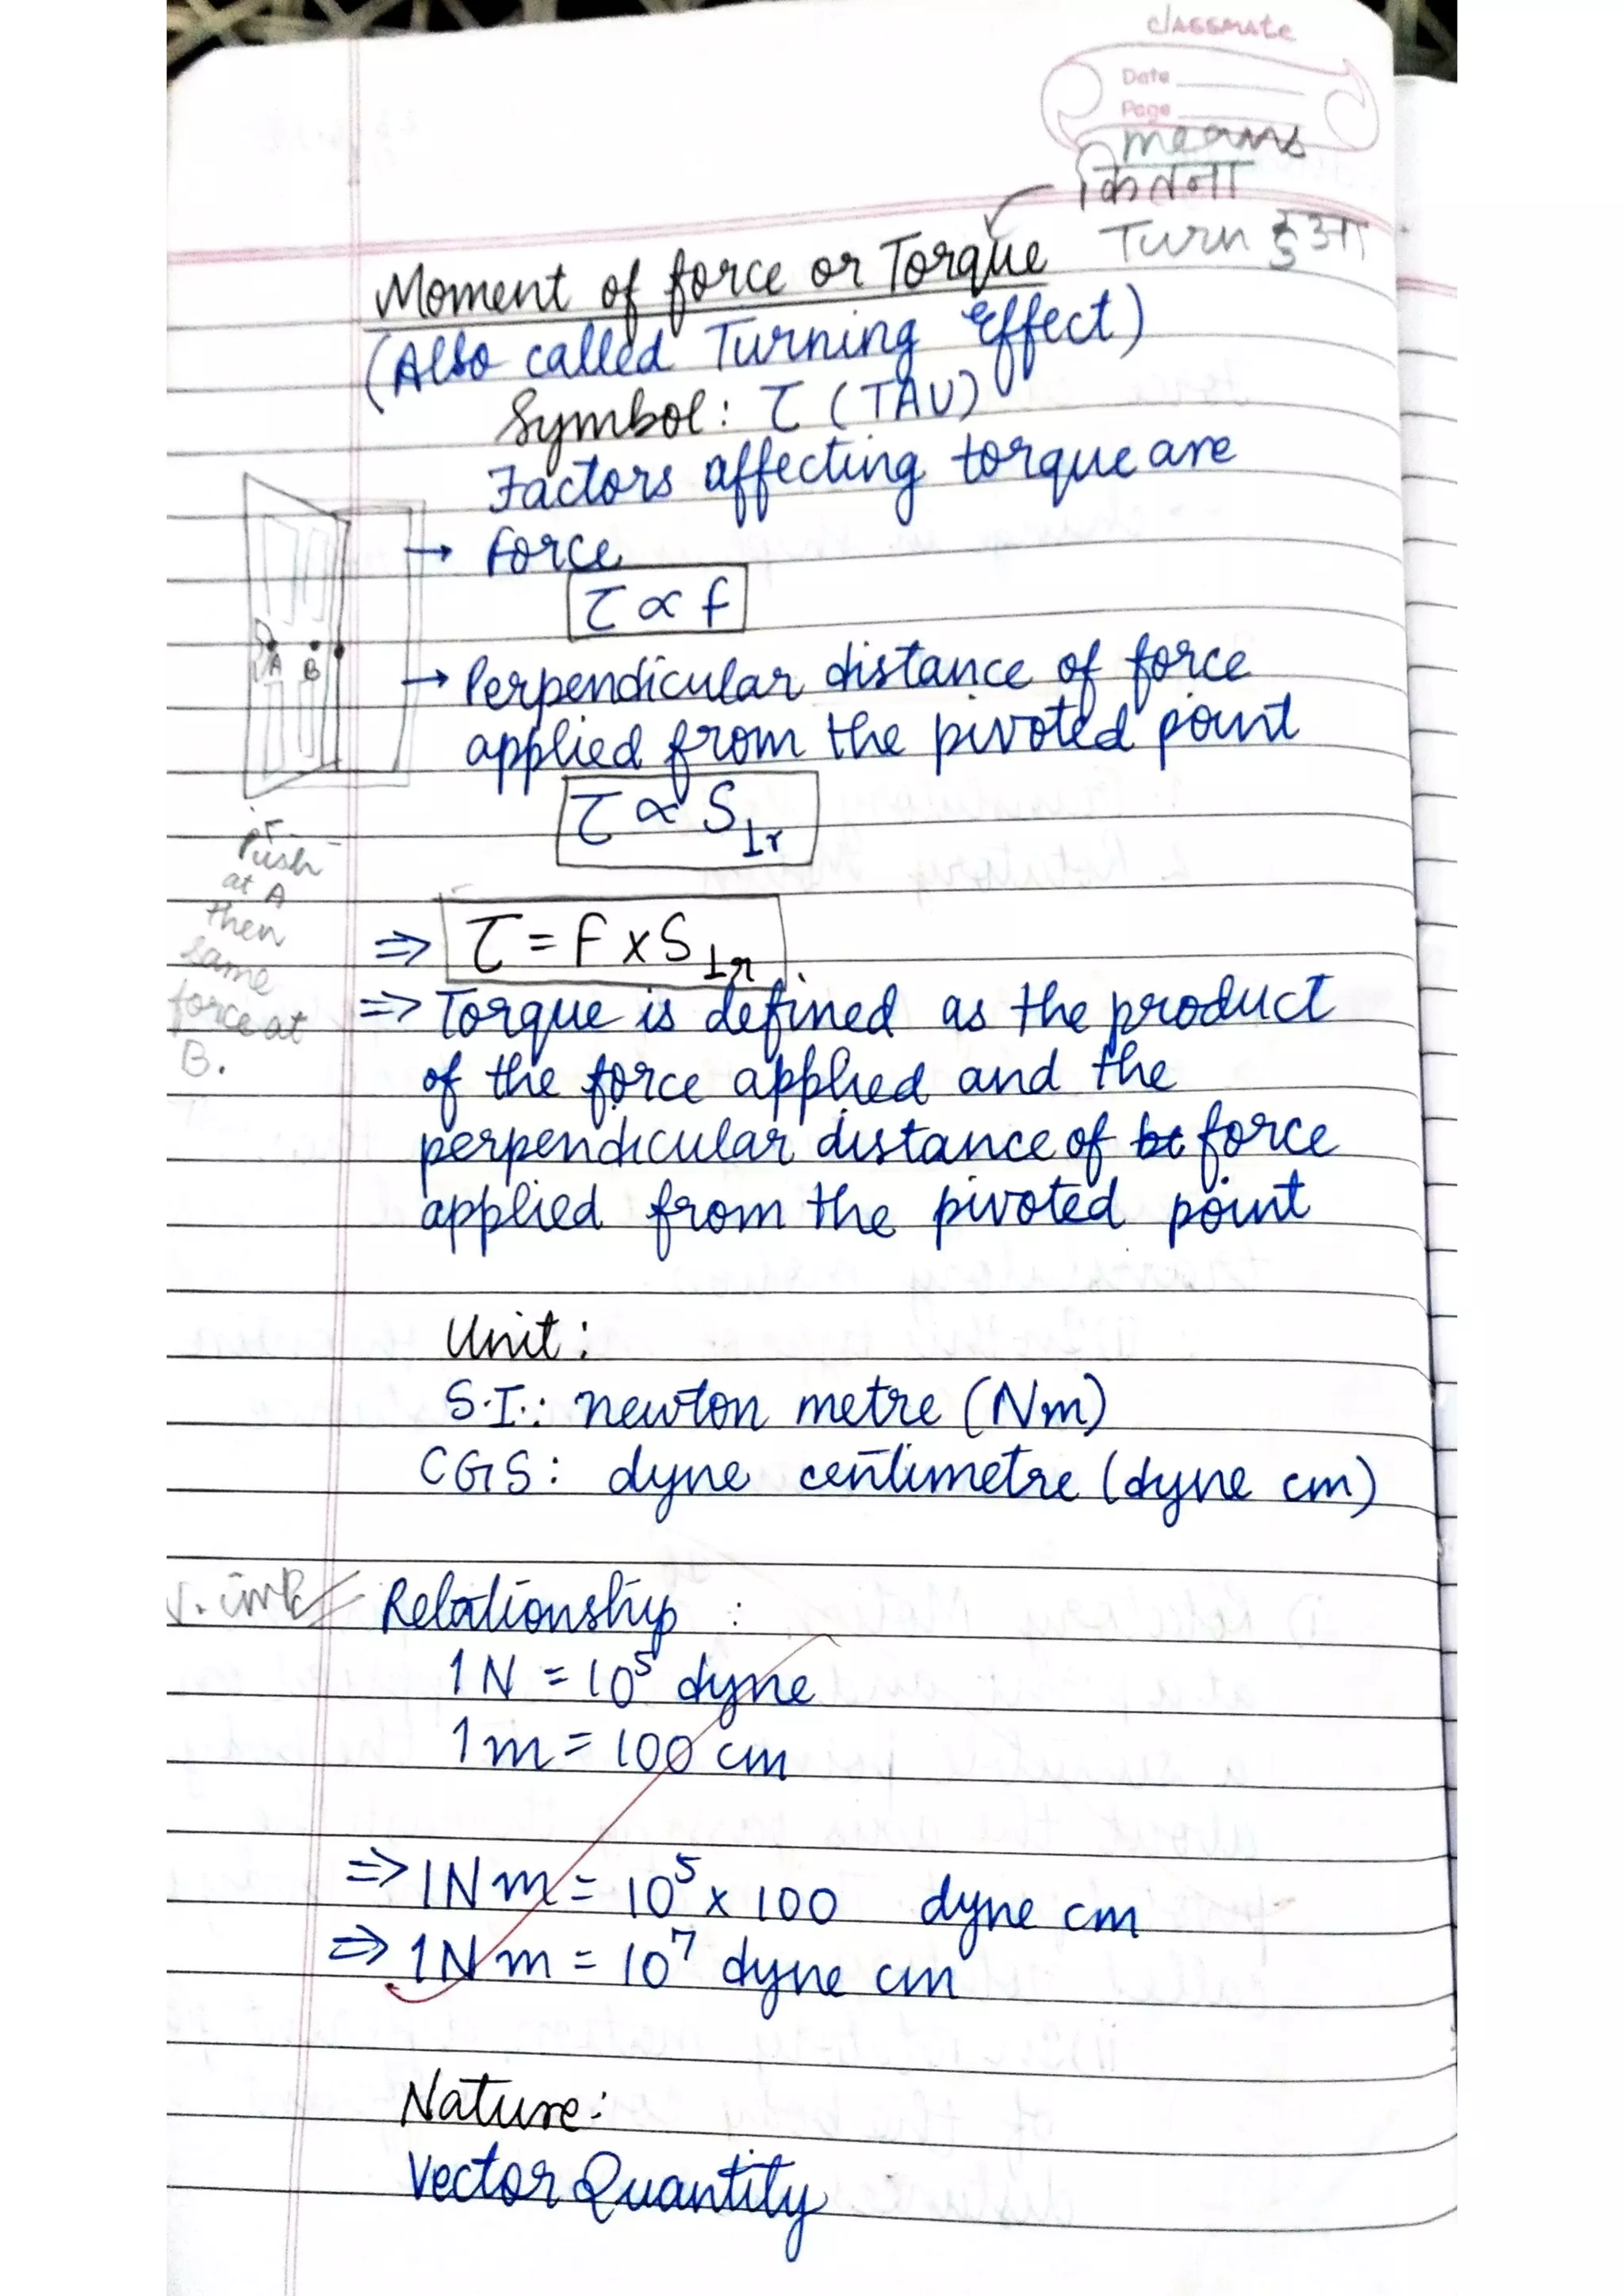 classmate
Date
Page
means
कितना
Turn हुआ
Moment of force or Torque
(Also called Turning Effect)
Symbol: τ (TAU)
Factors affecting torque are
→ force
τ ∝ f
→ Perpendicular distance of force
applied from the pivoted point
τ ∝ S⊥r
A B
Push
at A
then
same
force at
B.
⇒ τ = F × S⊥r
⇒ Torque is defined as the product
of the force applied and the
perpendicular distance of force
applied from the pivoted point
Unit:
S.I.: newton metre (Nm)
CGS: dyne centimetre (dyne cm)
V. imp Relationship :
1 N = 10⁵ dyne
1 m = 100 cm
⇒ 1 N m = 10⁵ × 100 dyne cm
⇒ 1 N m = 10⁷ dyne cm
Nature:
Vector Quantity